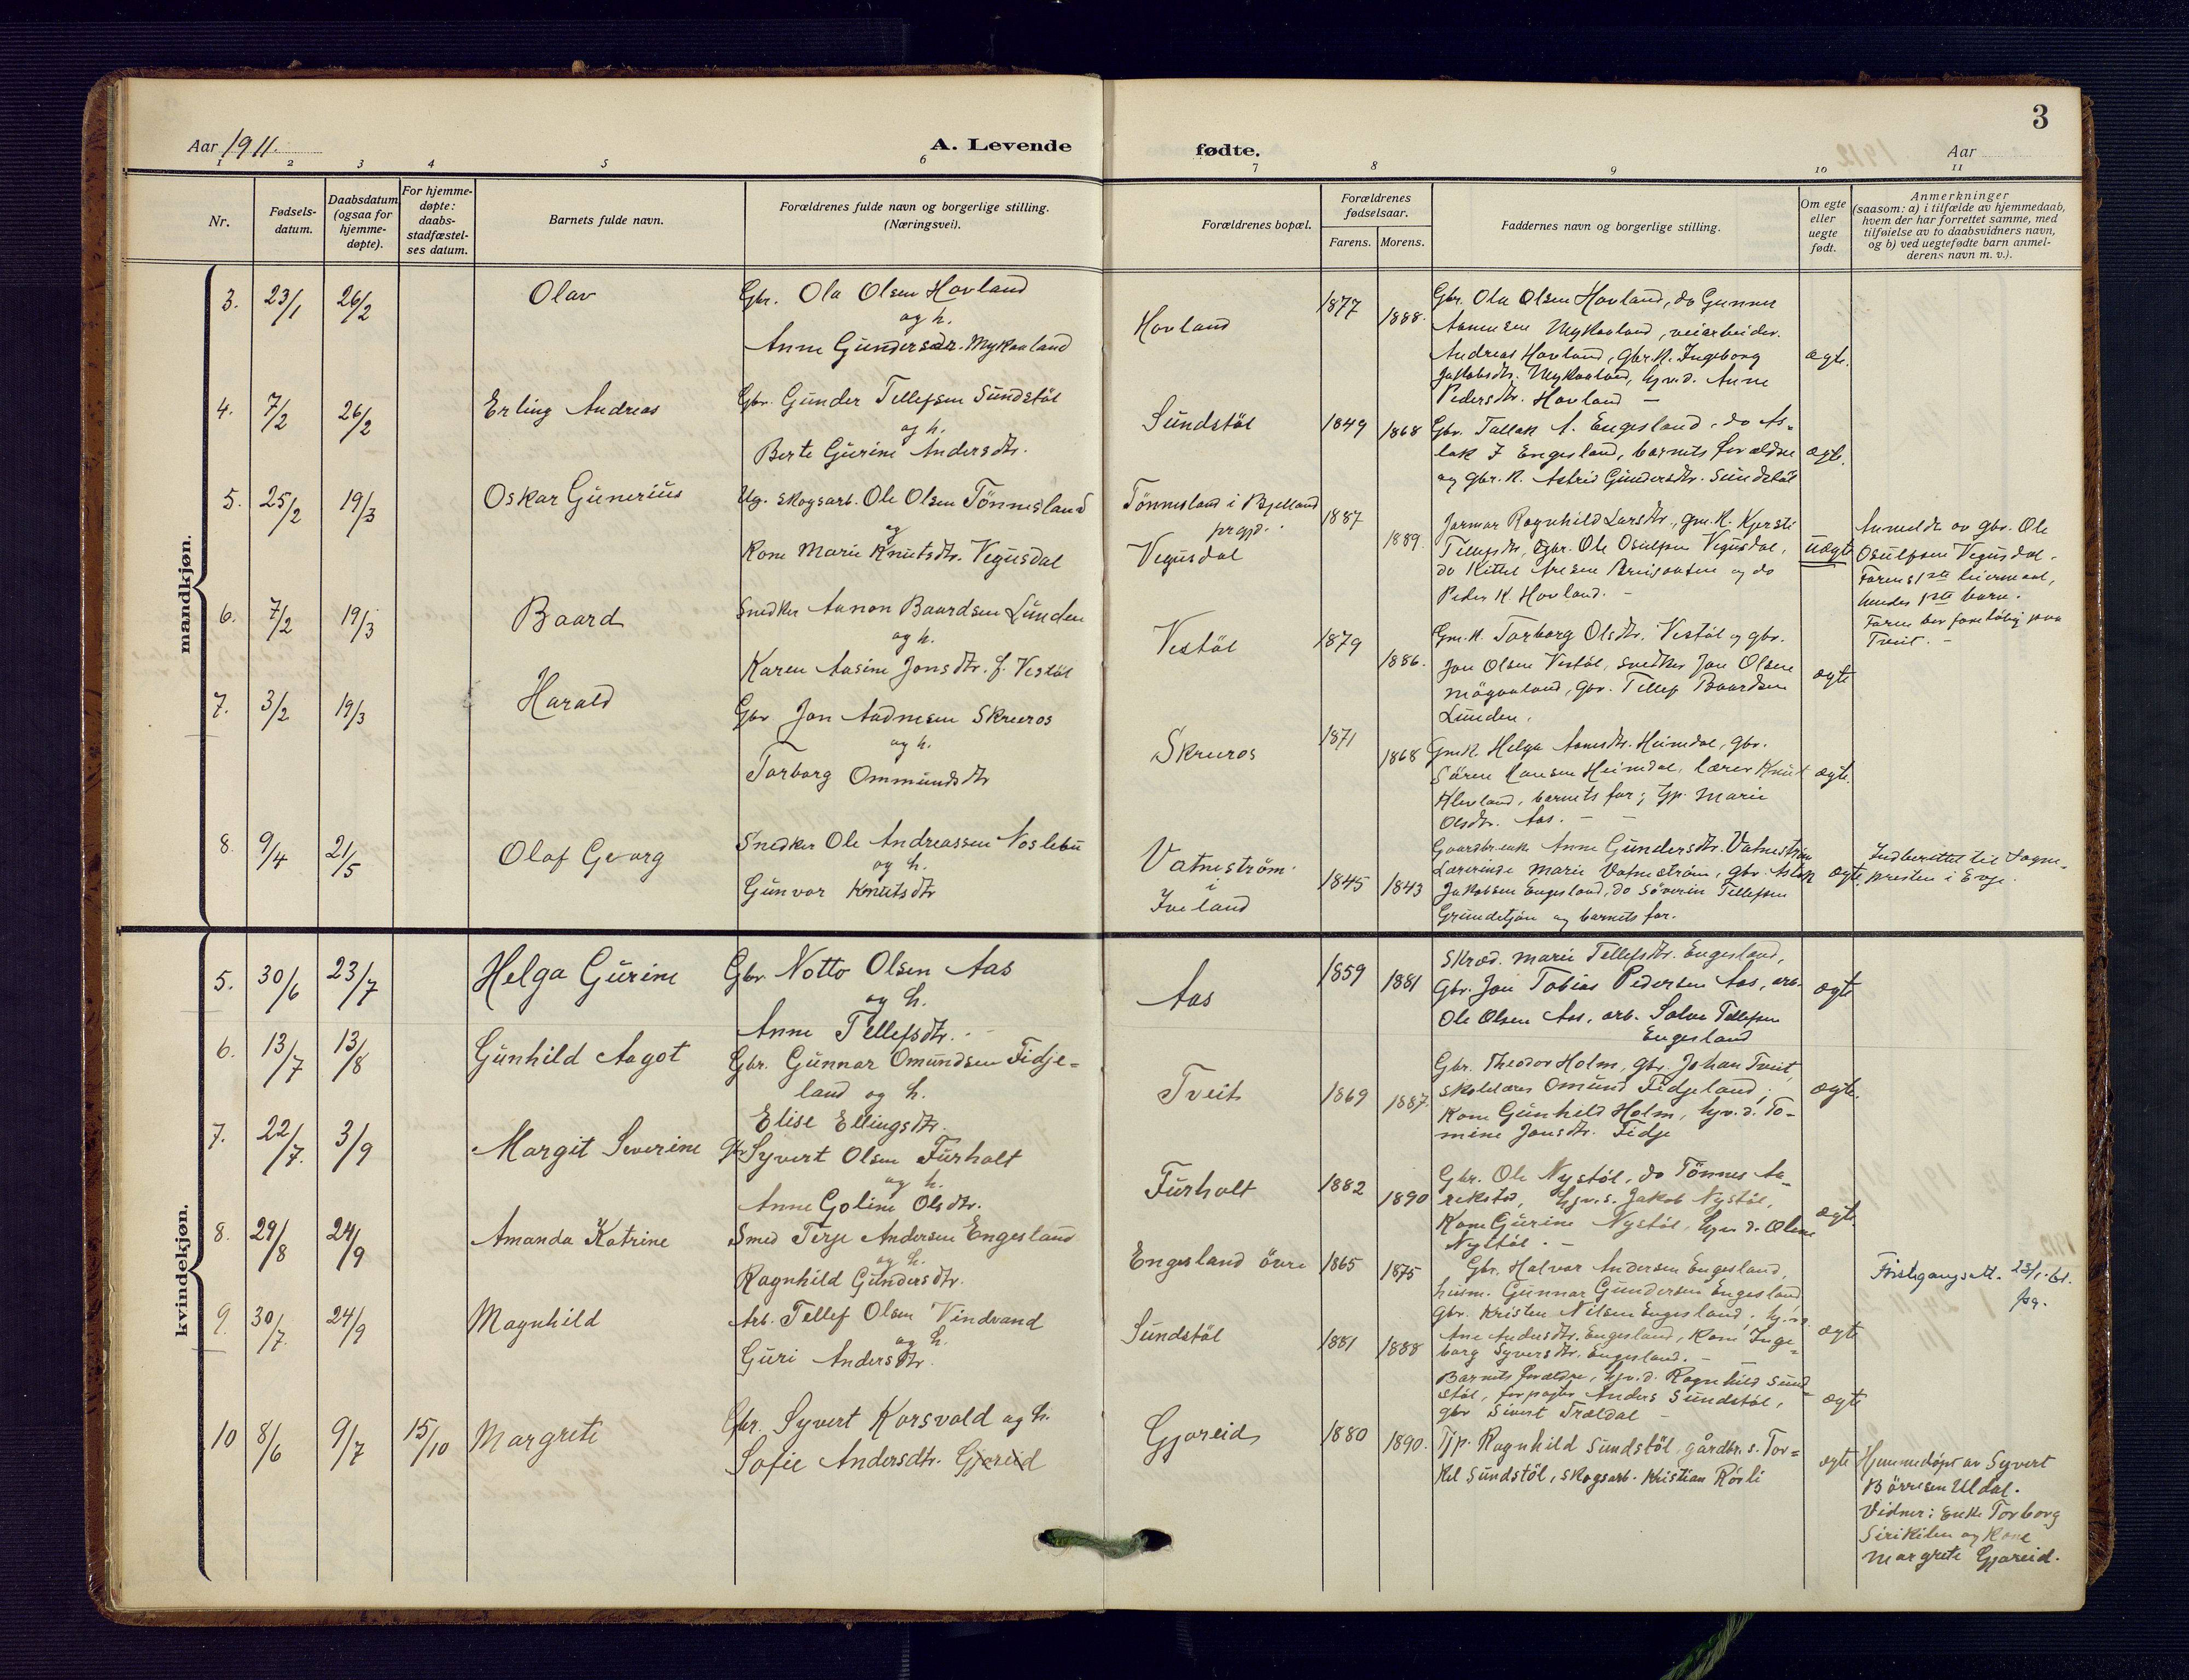 3
Aar 1911.
A. Levende fødte.
Aar
1 2 3 4 5 6 7 8 9 10 11
Nr.
Fødsels-
datum.
Daabsdatum
(ogsaa for
hjemme-
døpte).
For hjemme-
døpte:
daabs-
stadfæstel-
ses datum.
Barnets fulde navn.
Forældrenes fulde navn og borgerlige stilling.
(Næringsvei).
Forældrenes bopæl.
Forældrenes
fødselsaar.
Farens. Morens.
Faddernes navn og borgerlige stilling.
Om egte
eller
uegte
født.
Anmerkninger
(saasom: a) i tilfælde av hjemmedaab,
hvem der har forrettet samme, med
tilføielse av to daabsvidners navn,
og b) ved uegtefødte barn anmel-
derens navn m. v.).
mandkjøn.
3. 23/1 26/2 Olav
Gbr. Ola Olsen Hovland
og h.
Anne Gundersdr. Mykaaland
Hovland
1877 1888.
Gbr. Ola Olsen Hovland, do Gunner
Aanensen Mykaaland, veiarbeider
Andreas Hovland, Gbr.k. Ingeborg
Jakobsdtr. Mykaaland, hjv.d. Anne
Pedersdtr. Hovland –
ægte.
4. 7/2 26/2 Erling Andreas
Gbr. Gunder Tellefsen Sundstöl
og h.
Berte Gurine Andersdtr.
Sundstöl
1849 1868
Gbr. Tallak A. Engesland, do As-
lak J Engesland, barnets forældre
og gbr.k. Astrid Gundersdtr. Sundstöl
ægte.
5. 25/2 19/3 Oskar Gunerius
Ug. skogsarb. Ole Olsen Tönnesland
og
Kone Marie Knutsdtr. Vegusdal
Tönnesland i Bjelland
prgjd.
Vegusdal
1887 1889.
Jormor Ragnhild Larsdtr., gm.k. Kjersti
Tellefsdtr, Gbr. Ole Osulfsen Vegusdal,
do Kittel Aresen and do
Peder K. Hovland. –
uægte
Anmeldt av gbr. Ole
Osulfsen Vegusdal.
Farens 1ste leiermaal,
hendes 1ste barn.
Faren bor foreløbig paa
Tveit. –
6. 7/2 19/3 Baard
Snedker Aanon Baardsen Lunden
og h.
Karen Aasine Jonsdtr. f. Vestöl
Vestöl
1879 1886.
Gm.k. Torborg Olsdtr. Vestöl og gbr.
Jon Olsen Vestöl, snedker Jon Olsen
Mögaaland, gbr. Tellef Baardsen
Lunden.
ægte
7. 3/2 19/3 Harald
Gbr Jon Aadnesen Skreros
og h.
Torborg Ommundsdtr
Skreros
1871 1868
Gm.k. Helga Aanesdtr. Heimdal, gbr.
Sören Hansen Heimdal, lærer Knut
Klevland, barnets far; tjp. Marie
Olsdtr. Aas. – –
ægte.
8. 9/4 21/5 Olaf Georg
Snedker Ole Andreassen Noslebu
og h.
Gunvor Knutsdtr
Vatneström
i
Iveland
1845 1843
Gaardbr.enke Anne Gundersdtr. Vatneström
Lærerinde Marie Vatneström, gbr. Aslak
Jakobsen Engesland, do Söverin Tellefsen
Grundetjön og barnets far.
ægte
Indberettet til Sogne-
presten i Evje.
kvindekjøn.
5. 30/6 23/7 Helga Gurine
Gbr Notto Olsen Aas
og h.
Anne Tellefsdtr.
Aas
1859 1881
Skræd. Marie Tellefsdtr. Engesland,
Gbr. Jon Tobias Pedersen Aas, arb.
Ole Olsen Aas, arb. Salve Tellefsen
Engesland
ægte
6. 13/7 13/8 Gunhild Aagot
Gbr. Gunnar Omundsen Fidje-
land og h.
Elise Ellingsdtr.
Tveit
1869 1887.
Gbr. Theodor Holm, gbr. Johan Tveit,
skolelærer Omund Fidjeland,
Kone Gunhild Holm, hjv.d. To-
mine Jonsdtr. Fidje
ægte.
7. 22/7. 3/9 Margit Severine
Gbr Syvert Olsen Furholt
og h.
Anne Goline Olsdtr.
Furholt
1882 1890
Gbr. Ole Nystöl, do Tönnes Aa-
rekstad, hjv.s. Jakob Nystöl,
Kone Gurine Nystöl, hjv d. Olene
Nystöl. –
ægte.
8. 29/8 24/9 Amanda Katrine
Smed Terje Andersen Engesland
og h.
Ragnhild Gundersdtr.
Engesland övre
1865 1875
Gbr. Halvor Andersen Engesland,
husm. Gunnar Gundersen Engesland
gbr. Kristen Nilsen Engesland,
Ane Andersdtr. Engesland, Kone Inge-
borg Syversdtr. Engesland. –
ægte
Förstegangsatt. 23/1-61.
9. 30/7. 24/9 Magnhild
Arb. Tellef Olsen Vindvand
og h.
Guri Andersdtr.
Sundstöl
1881 1888
Barnets forældre, hjv.d. Ragnhild Sund-
stöl, forpagter Anders Sundstöl,
gbr Sivert Trældal –
ægte
10 8/6 9/7 15/10 Margrete
Gbr. Syvert Korsvold og h.
Sofie Andersdtr. Gjareid
Gjareid
1880 1890.
Tjp. Ragnhild Sundstöl, gårdbr. s. Tor-
kel Sundstöl, skogsarb. Kristian Rösli
ægte
Hjemmedöpt av Syvert
Börresen Uldal.
Vidner: Enke Torborg
Sirikilen og Kone
Margrete Gjareid.